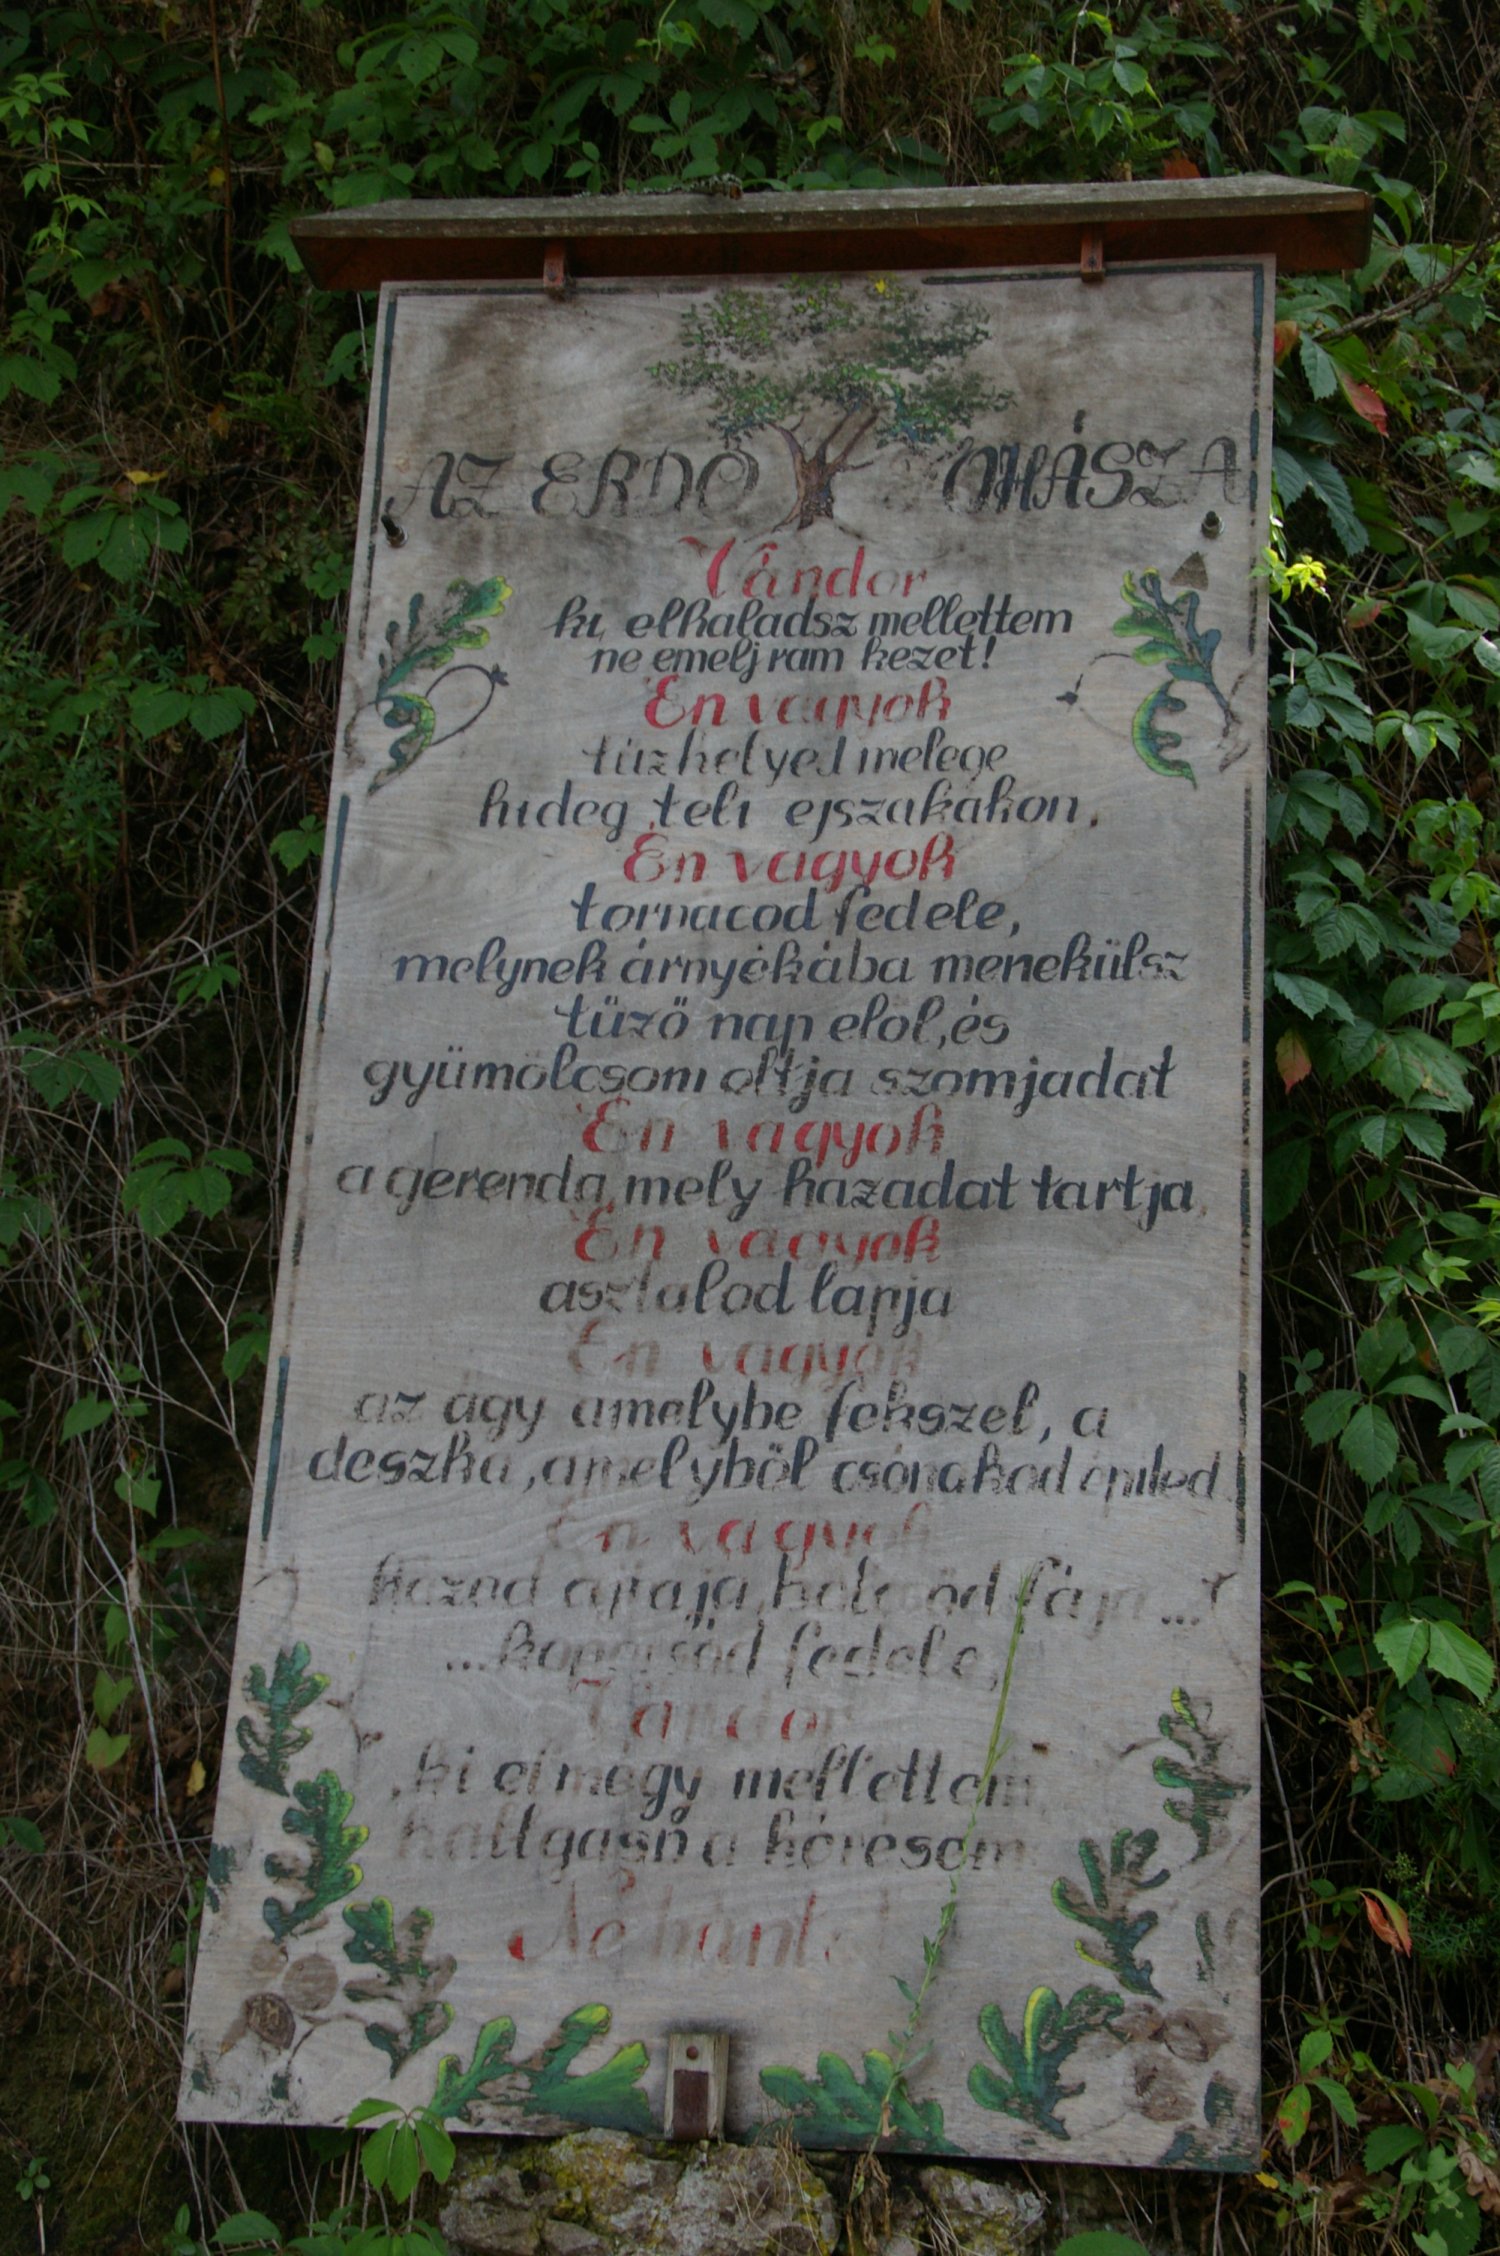 AZ ERDŐ OHÁSZA
Vándor
ki, elhaladsz mellettem
ne emelj ram kezet!
Én vagyok
tűzhelyed melege
hideg, teli ejszakákon,
Én vagyok
tornacod fedele,
melynek árnyékába menekülsz
tűző nap elol, és
gyümölcsom oltja szomjadat
Én vagyok
a gerenda, mely hazadat tartja,
Én vagyok
asztalod lapja
Én vagyok
az ágy amelybe fekszel, a
deszka, amelyből csónakod epited
Én vagyok
hazad ajtaja, bölcsőd fája ...
... koporsód fedele,
Vándor
, ki elmegy mellettem
hallgasd a kérésem
Ne bánts